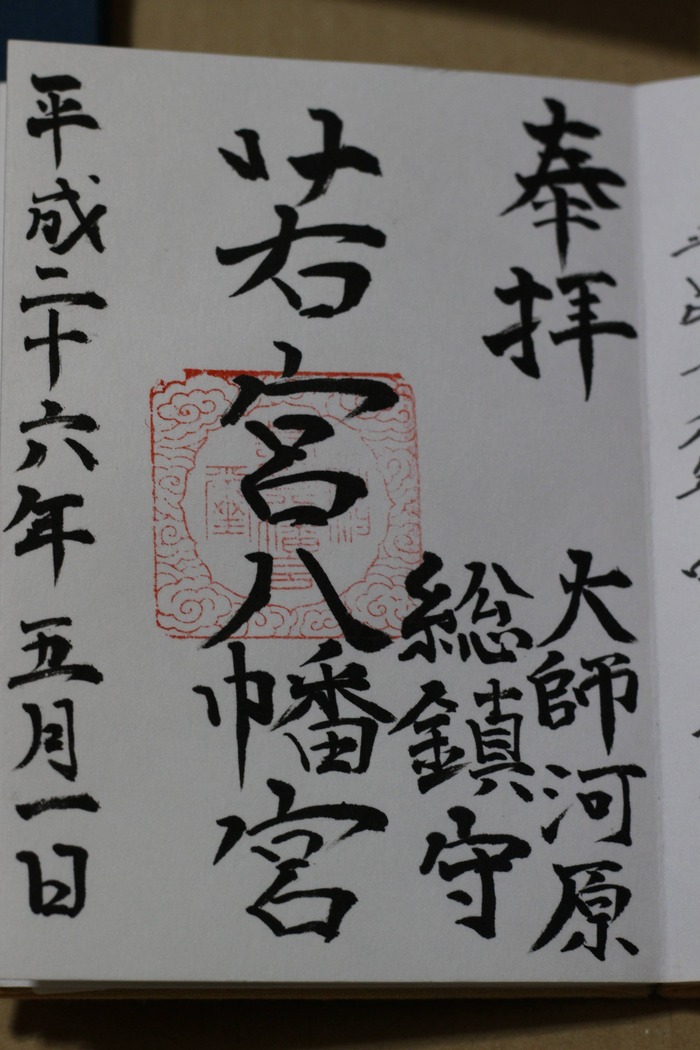 奉拝
大師河原
総鎮守
若宮八幡宮
平成二十六年五月一日